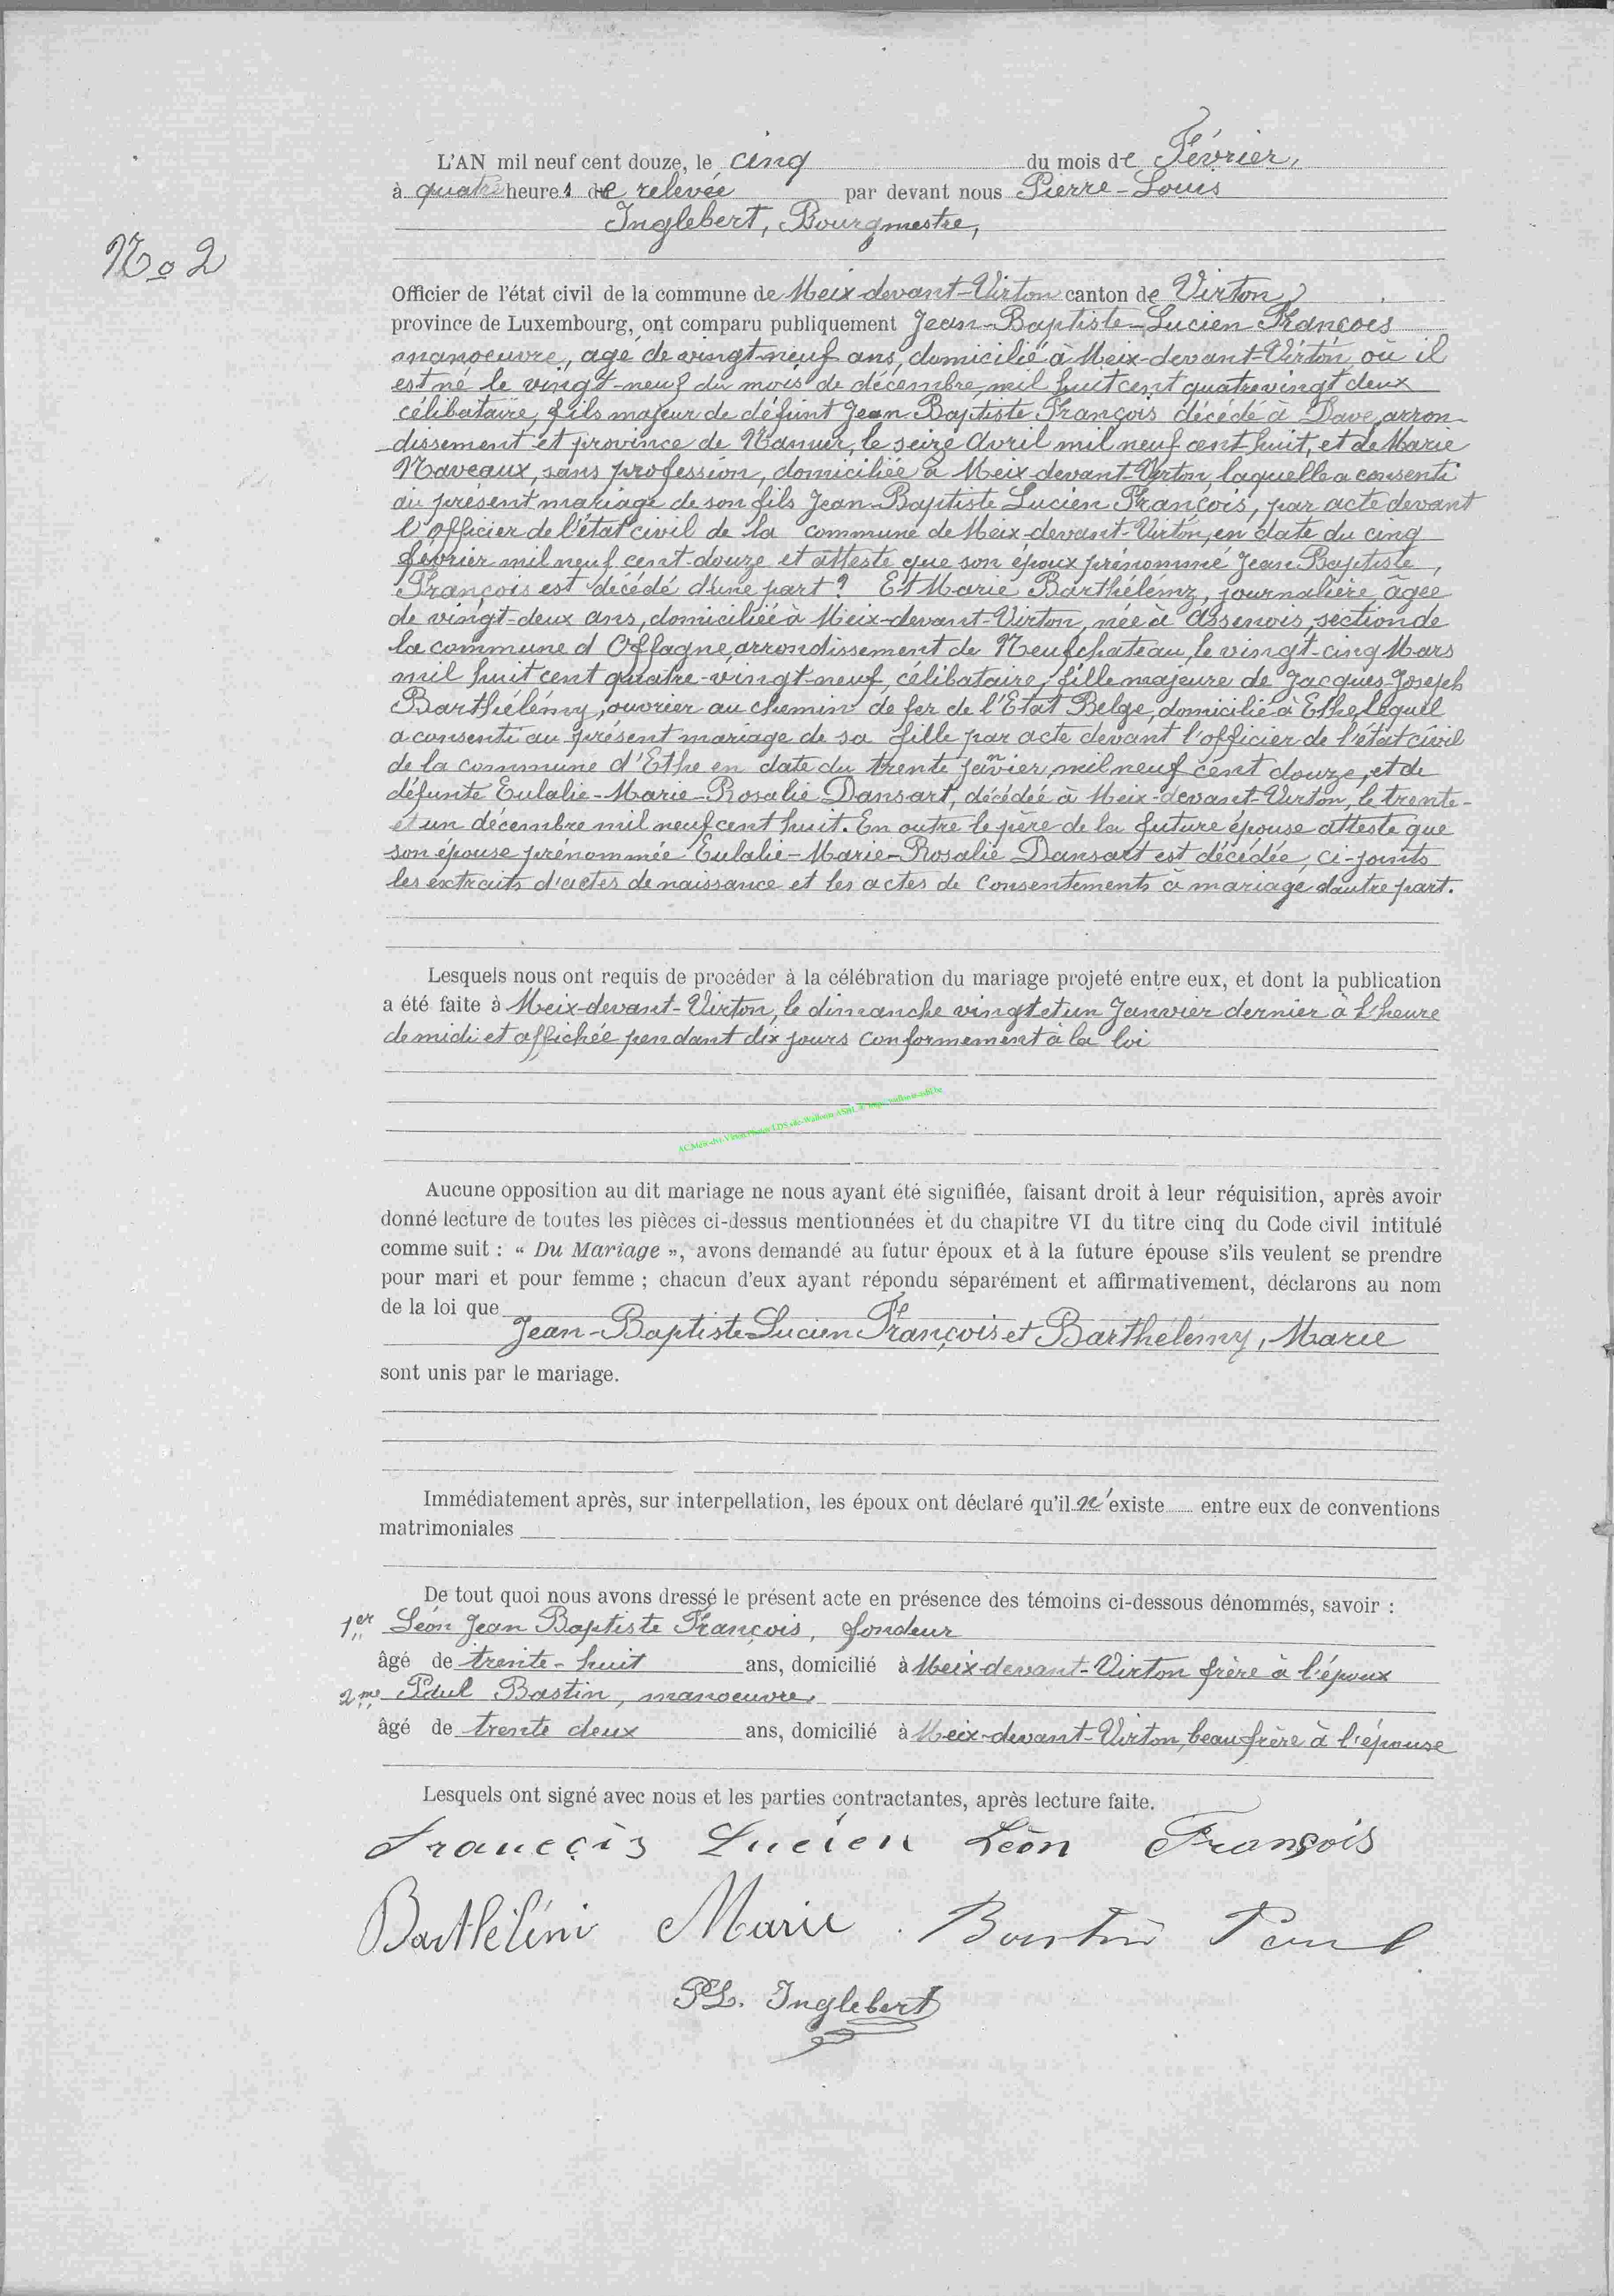 L'AN mil neuf cent douze, le cinq du mois de Février,
à quatre heures de relevée par devant nous Pierre-Louis
Inglebert, Bourgmestre,
No 2
Officier de l'état civil de la commune de Meix-devant-Virton canton de Virton,
province de Luxembourg, ont comparu publiquement Jean-Baptiste-Lucien François
manoeuvre, agé de vingt-neuf ans, domicilié à Meix-devant-Virton où il
est né le vingt-neuf du mois de décembre mil huit cent quatre vingt deux
célibataire, fils majeur de défunt Jean Baptiste François décédé à Dave, arron-
dissement et province de Namur, le seize Avril mil neuf cent huit, et de Marie
Naveaux, sans profession, domiciliée à Meix-devant-Virton, laquelle a consenti
au présent mariage de son fils Jean-Baptiste Lucien François, par acte devant
l'officier de l'état civil de la commune de Meix-devant-Virton, en date du cinq
février mil neuf cent-douze et atteste que son époux prénommé Jean Baptiste,
François est décédé d'une part? Et Marie Barthélémy, journalière, âgée
de vingt-deux ans, domiciliée à Meix-devant-Virton, née à Assenois, section de
la commune d Offagne, arrondissement de Neufchateau, le vingt-cinq Mars
mil huit cent quatre-vingt-neuf, célibataire, fille majeure de Jacques-Joseph
Barthélémy, ouvrier au chemin de fer de l'Etat Belge, domicilié à Ethe, lequel
a consenti au présent mariage de sa fille par acte devant l'officier de l'état civil
de la commune d'Ethe en date du trente janvier mil neuf cent douze, et de
défunte Eulalie-Marie-Rosalie Dansart, décédée à Meix-devant-Virton, le trente-
et un décembre mil neuf cent huit. En outre le père de la future épouse atteste que
son épouse prénommée Eulalie-Marie-Rosalie Dansart est décédée, ci-joints
les extraits d'actes de naissance et les actes de Consentements à mariage d'autre part.
Lesquels nous ont requis de procéder à la célébration du mariage projeté entre eux, et dont la publication
a été faite à Meix-devant-Virton, le dimanche vingt et un Janvier dernier à l'heure
de midi et affichée pendant dix jours conformement à la loi
AC Meix-dvt-Virton Photos LDS
Aucune opposition au dit mariage ne nous ayant été signifiée, faisant droit à leur réquisition, après avoir
donné lecture de toutes les pièces ci-dessus mentionnées et du chapitre VI du titre cinq du Code civil intitulé
comme suit : « Du Mariage », avons demandé au futur époux et à la future épouse s'ils veulent se prendre
pour mari et pour femme ; chacun d'eux ayant répondu séparément et affirmativement, déclarons au nom
de la loi que
Jean-Baptiste Lucien François et Barthélémy, Marie
sont unis par le mariage.
Immédiatement après, sur interpellation, les époux ont déclaré qu'il n'existe entre eux de conventions
matrimoniales
De tout quoi nous avons dressé le présent acte en présence des témoins ci-dessous dénommés, savoir :
1er Léon Jean Baptiste François, fondeur
âgé de trente-huit ans, domicilié à Meix-devant-Virton frère à l'époux
2me Paul Bastin, manoeuvre,
âgé de trente deux ans, domicilié à Meix-devant-Virton, beau frère à l'épouse
Lesquels ont signé avec nous et les parties contractantes, après lecture faite.
Franccçis Lucien Léon François
Barthélémi Marie Bastin Paul
PL. Inglebert